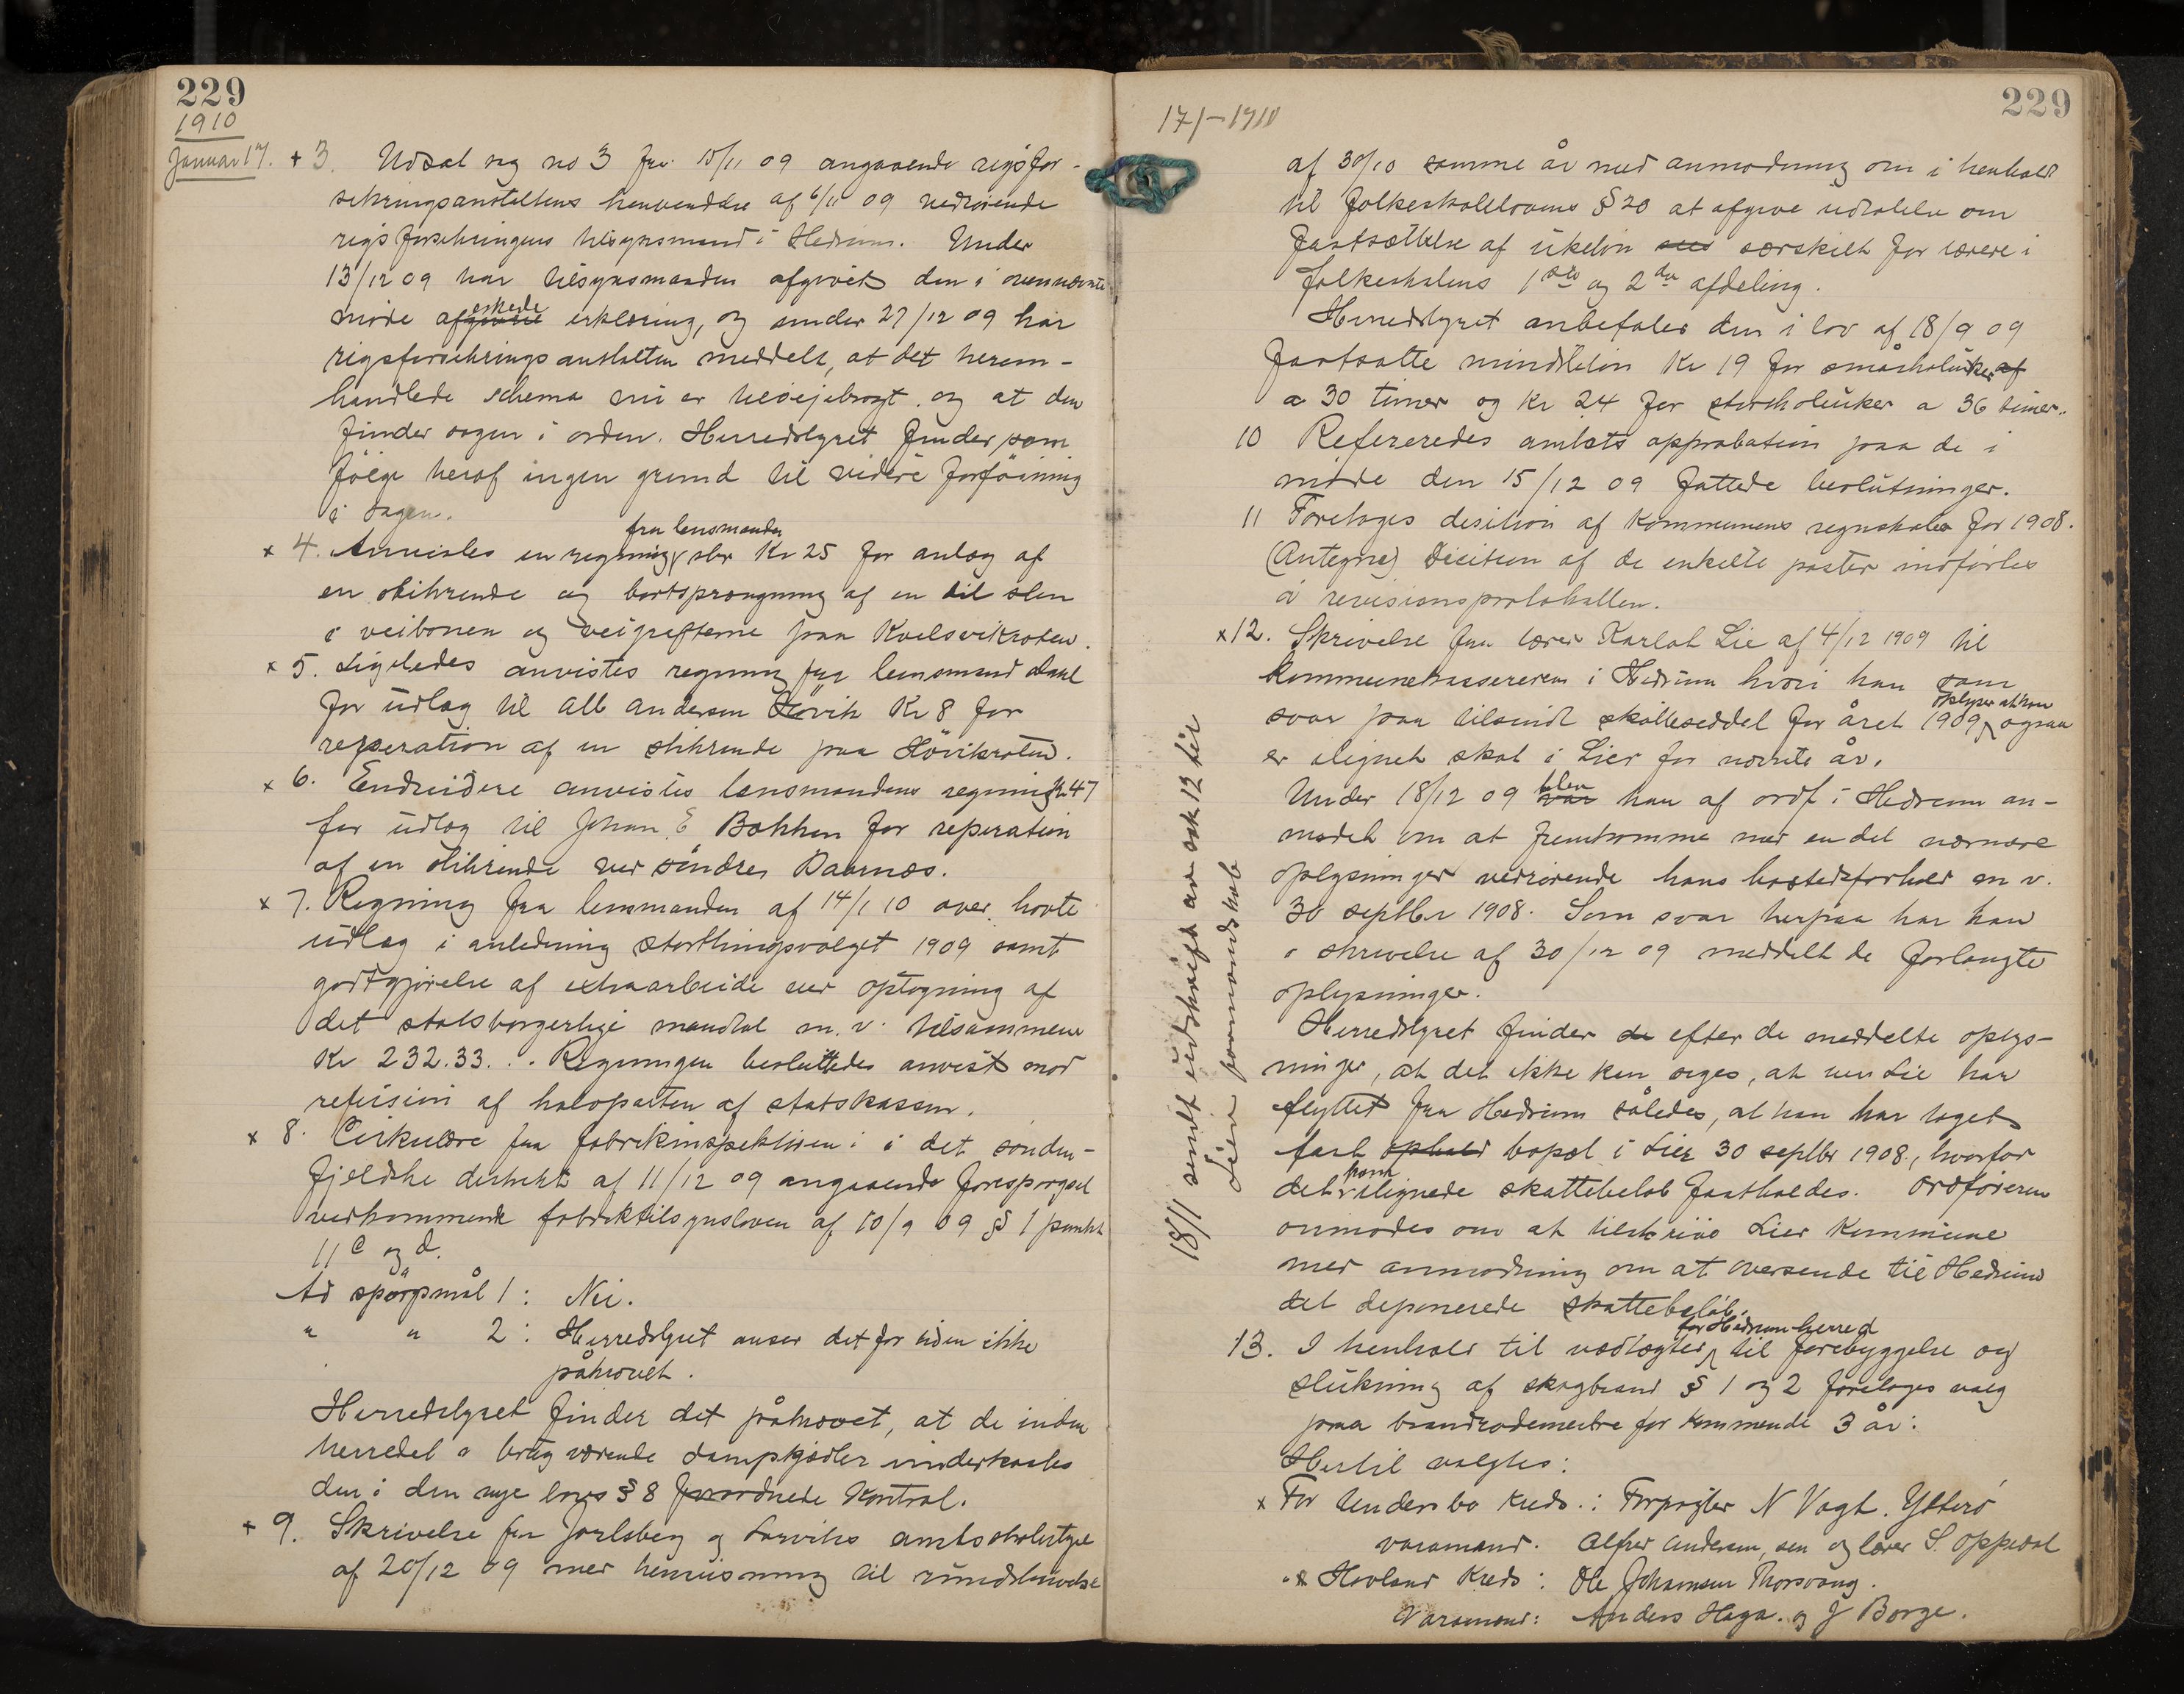 229
1910
Januar 17. + 3. Udsat sag no 3 fra 15/11 09 angaaende rigsfor-
sikringsanstaltens henvendelse af 6/11 09 vedrørende
rigsforsikringens tilsynsmand i Hedrum. Under
13/12 09 har tilsynsmanden afgivet den i ovennævnte
møde afgivne æskede erklæring, og under 27/12 09 har
rigsforsikringsanstalten meddelt, at det herom-
handlede schema nu er tilveiebragt og at den
finder sagen i orden. Herredstyret finder som
følge heraf ingen grund til videre forføining
i sagen.
x 4. Anvistes en regning fra lensmanden stor Kr 25 for anlæg af
en stikrende og bortsprængning af en del sten
i veibanen og veigrøfterne paa Kvelsvikroten.
x 5. Ligeledes anvistes regning fra lensmand Dahl
for udlæg til Alb Andersen Hövik Kr 8 for
reperation af en stikrende paa Hövikroten.
x 6. Endvidere anvistes lensmandens regning Kr 47
for udlæg til Johan E Bakken for reperation
af en stikrende ved söndre Daarnæs.
x 7. Regning fra lensmanden af 14/1 10 over havte
udlæg i anledning storthingsvalget 1909 samt
godtgjörelse af extraarbeide ved optagning af
det statsborgerlige mandtal m. v. tilsammen
Kr 232.33. Regningen besluttedes anvist mod
refusion af halvparten af statskassen.
x 8. Cirkulære fra fabrikinspektören i det sönden-
fjeldske distrikt af 11/12 09 angaaende forespørgsel
vedkommende fabriktilsynsloven af 10/9 09 § 1 punkt
11 c og d.
Ad spörgsmål 1: Nei.
" " 2: Herredstyret anser det for tiden ikke
påkrævet.
Herredstyret finder det påkrævet, at de inden
herredet i brug værende dampkjedler underkastes
den i den nye lovs § 8 forordnede kontrol.
+ 9. Skrivelse fra Jarlsberg og Larviks amtsskolestyre
af 20/12 09 med henvisning til rundskrivelse
229
17/1-1910
af 30/10 samme år med anmodning om i henhold
til folkeskolelovens § 20 at afgive udtalelse om
fastsættelse af ukelön særskilt for lærere i
folkeskolens 1ste og 2den afdeling.
Herredstyret anbefaler den i lov af 18/9 09
fastsatte mindstelön Kr 19 for småskoleuker af
a 30 timer og Kr 24 for storskoleuker a 36 timer.
10 Refereredes amtets approbation paa de i
møde den 15/12 09 fattede beslutninger.
11 Foretoges desition af kommunens regnskaber for 1908.
(Antegne) Decition af de enkelte poster indførtes
i revisionsprotokollen.
x 12. Skrivelse fra lærer Karlot Lie af 4/12 1909 til
kommunekassereren i Hedrum hvori han som
svar paa tilsendt skatteseddel for året 1909 oplyser at han ogsaa
er ilignet skat i Lier for nævnte år.
Under 18/12 09 var blev han af ordf i Hedrum an-
modet om at fremkomme med endel nærmere
oplysninger vedrörende hans bostedsforhold m v.
30 septbr 1908. Som svar herpaa har han
i skrivelse af 30/12 09 meddelt de forlangte
oplysninger.
Herredstyret finder de efter de meddelte oplys-
ninger, at det ikke kan siges, at ... Lie har
flyttet fra Hedrum således, at han har taget
fast ophold bopæl i Lier 30 septbr 1908, hvorfor
det ham ilignede skattebelöb fastholdes. Ordföreren
anmodes om at tilskrive Lier kommune
med anmodning om at oversende til Hedrum
det deponerede skattebelöb.
13. I henhold til vedtægter for Hedrum herred til forebyggelse og
slukning af skogbrand § 1 og 2 foretoges valg
paa brandrodemestre for kommende 3 år:
Hertil valgtes:
x For Undersbo Kreds: Forpagter N Vogt. Ytterö
varamænd. Alfred Andersen, sen og lærer S. Oppedal
" x Hovland Kreds: Ole Johannsen Thorsvang.
Varamænd: Anders Haga. og J Borge.
18/1 sendt udskrift av sak 12 til
Lier formandskab